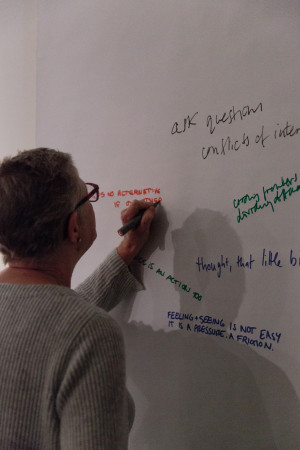 ask questions
conflicts of inter
IS NO ALTERNATIVE
IS
thought, that little b
IS AN ACTION TOO
FEELING + SEEING IS NOT EASY
IT IS A PRESSURE. A FRICTION.